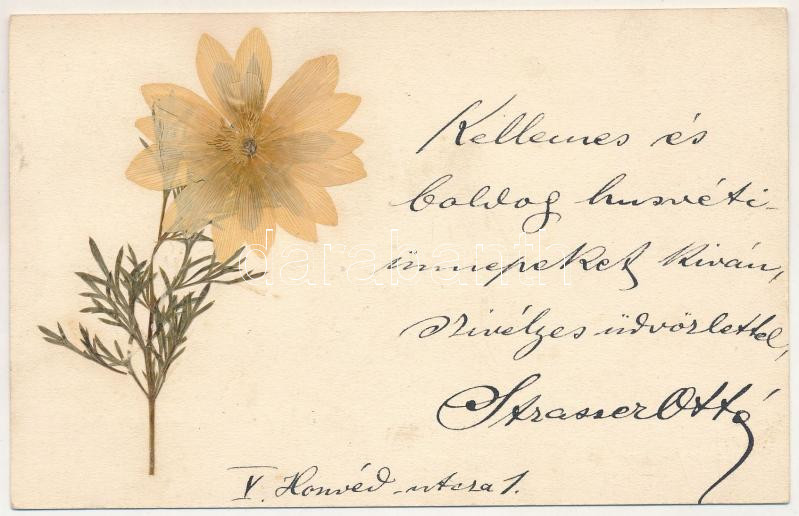 Kellemes és
boldog husvéti-
ünnepeket kiván,
szivélyes üdvözlettel,
Strasser Ottó
V. Honvéd-utcza 1.
darabanth